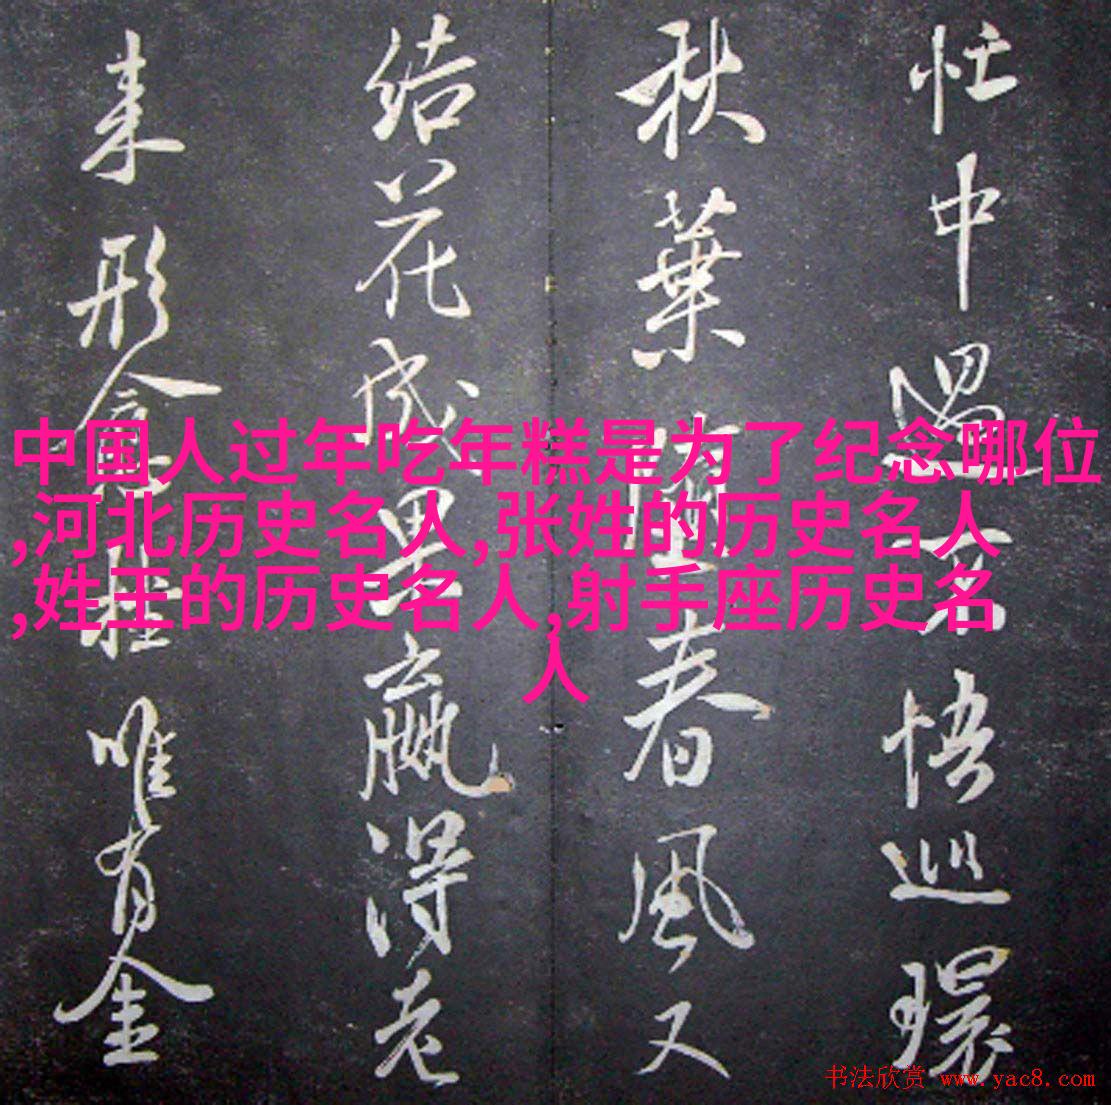 忙中 不悟巡環
秋葉 春風又
结花成果赢得老
来形 唯有金
中国人过年吃年糕是为了纪念哪位
,河北历史名人,张姓的历史名人
,姓王的历史名人,射手座历史名
人
书法欣赏 www.yac8.com